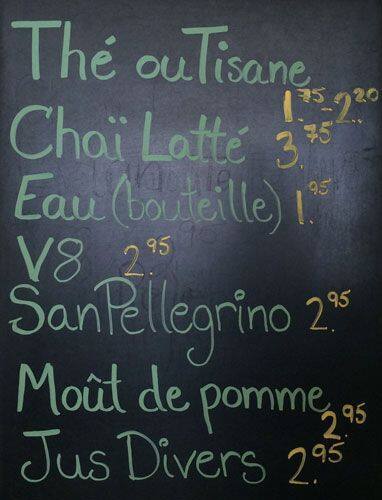 Thé ou Tisane
1.75-2.20
Chaï Latté 3.75
Eau (bouteille) 1.95
V8 2.95
San Pellegrino 2.95
Moût de pomme 2.95
Jus Divers 2.95